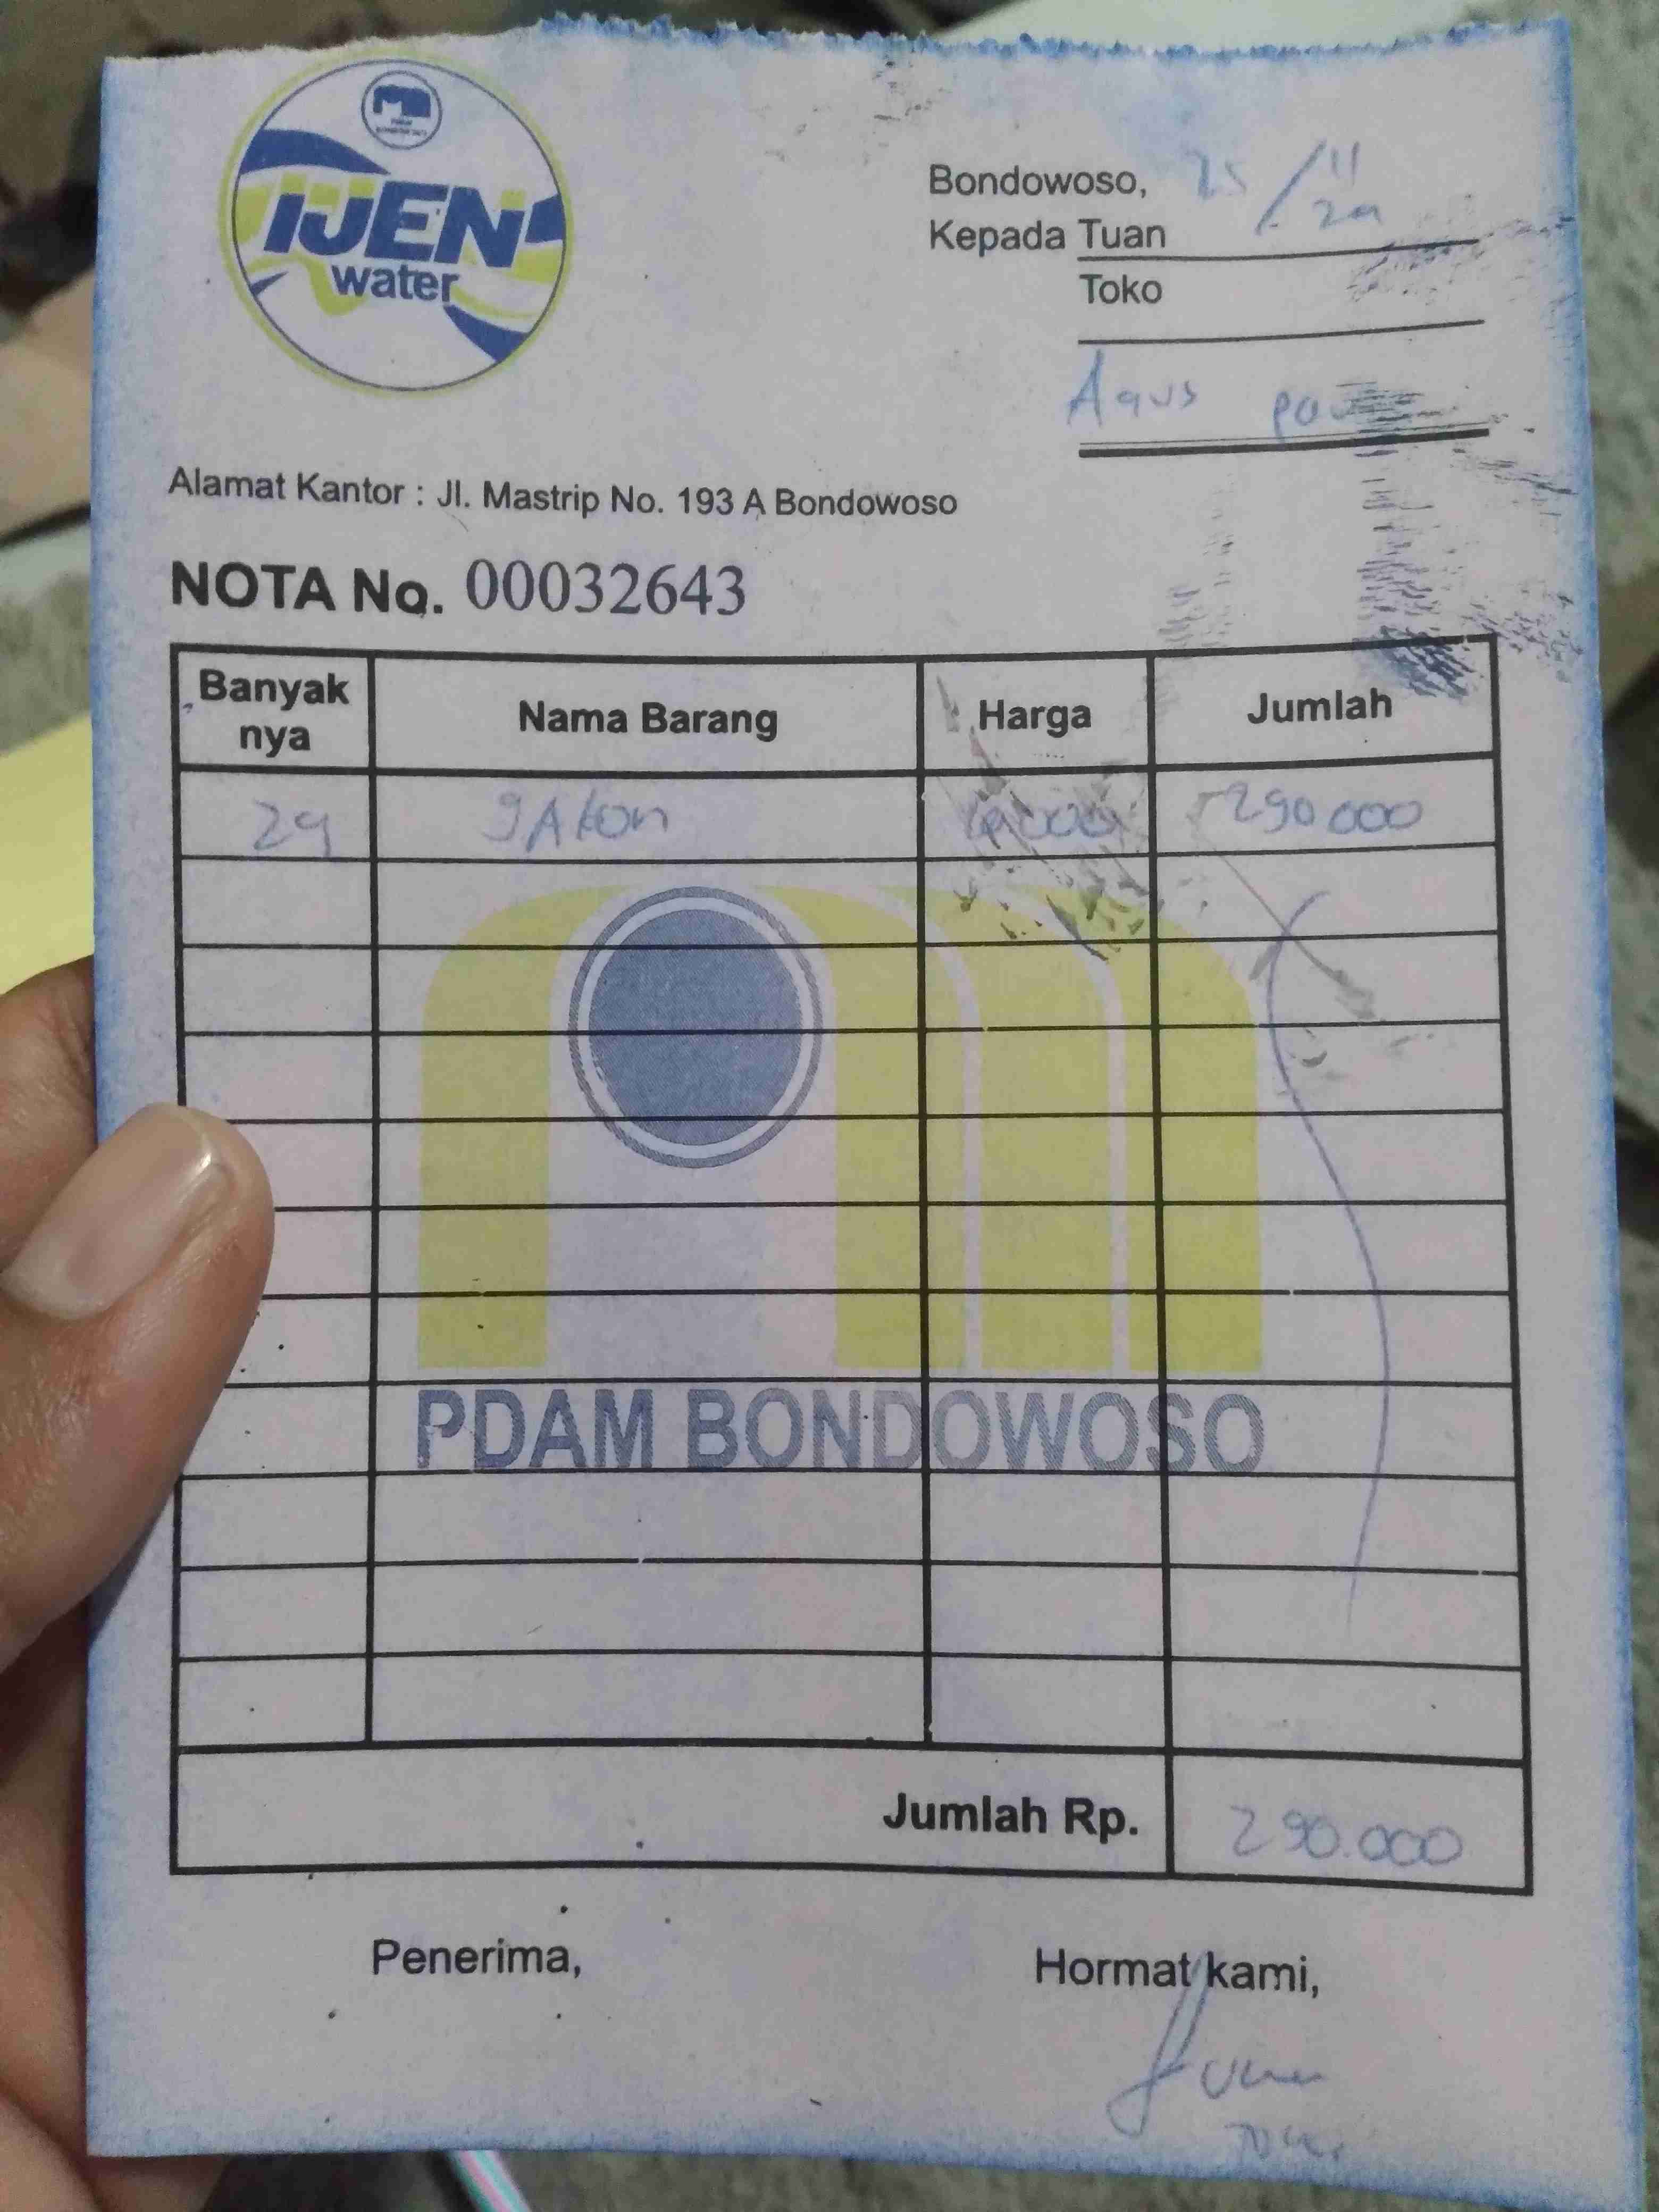 IJEN
water
Bondowoso, 25/11
Kepada Tuan
Toko
Agus
Alamat Kantor : Jl. Mastrip No. 193 A Bondowoso
NOTA No. 00032643
Banyak nya Nama Barang Harga Jumlah
29 GAlon 290 000
PDAM BONDOWOSO
Jumlah Rp. 290.000
Penerima, Hormat kami,